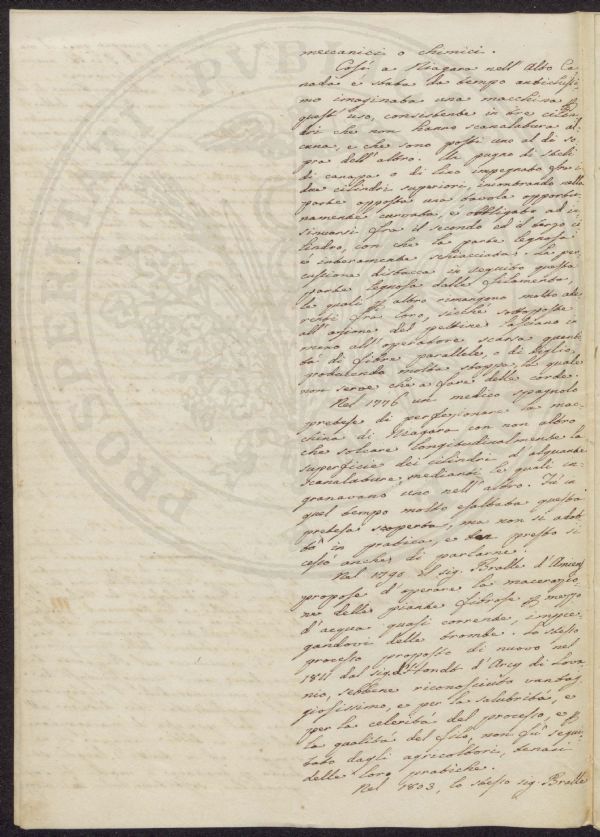 meccanici o chimici.
Così a Niagara nell'Alto Ca-
nadà è stata da tempo antichissi-
mo imaginata una macchina p
quest'uso, consistente in tre cilin-
dri che non hanno scanalatura al-
cuna, e che sono posti uno al di so-
pra dell'altro. Un pugno di steli
di canapa o di lino impegnato fra i
due cilindri superiori, incontrando nella
parte opposta una tavola opportu-
namente curvata, è obbligato ad in-
sinuarsi fra il secondo ed il terzo ci-
lindro, con che la parte legnosa
è interamente schiacciata. La per-
cussione distacca in seguito questa
parte legnosa dalle filamenta,
le quali p altro rimangono molto ade-
renti fra loro, sicchè sottoposte
all'azione del pettine lasciano in
mano all'operatore scarsa quanti-
tà di fibre parallele, o di tiglio,
producendo molta stoppa, la quale
non serve che a fare delle corde.
Nel 1776 un medico spagnolo
pretese di perfezionare la mac-
china di Niagara con non altro
che solcare longitudinalmente la
superficie dei cilindri d'alquante
scanalature, mediante le quali in-
granavano uno nell'altro. Fu in
quel tempo molto esaltata questa
pretesa scoperta, ma non si adot-
tò in pratica, e ben presto si
cessò anche di parlarne.
Nel 1790 il sig. Bralle d'Amiens
propose d'operare la macerazio-
ne delle piante fibrose p mezzo
d'acqua quasi corrente, impie-
gandovi delle trombe. Lo stesso
processo proposto di nuovo nel
1811 dal sig. d'Hondt d'Arcy di Lova-
nio, sebbene riconosciuto vantag-
giosissimo, e per la salubrità, e
per la celerità del processo, e p
la qualità del filo, non fu segui-
tato dagli agricoltori, tenaci
delle loro pratiche.
Nel 1803, lo stesso sig. Bralle